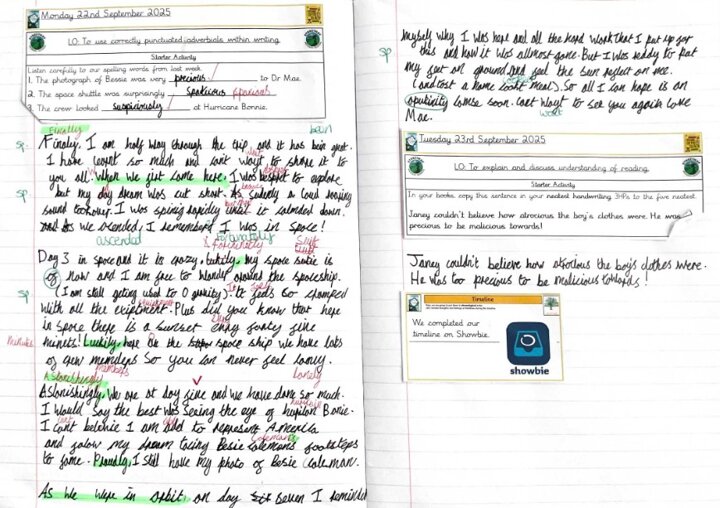 Monday 22nd September 2025
LO: To use correctly punctuated adverbials within writing.
Starter Activity
Listen carefully to our spelling words from last week.
1. The photograph of Bessie was very precious to Dr Mae.
2. The space shuttle was surprisingly spatcious spacious
3. The crew looked suspiciously at Hurricane Bonnie.
Finally
been
sp. Finaly, I am half way through the trip, and it has been great.
I have learnt so much and cant wayt to share it to
you all. When we first came here, I was
sp but my day dream was cut short. As sudenly a loud beeping
sound tookover. I was spinig rapidly until it calmded down.
and As we asended, I remembered I was in space!
ascended
Day 3 in space and it is crazy. Luckily, my space sutie is
of now and I am free to wander around the spaceship.
sp (I am still geting used to 0 gravity). It feels so
with all the exiptment. Plus did you know that here
in space there is a sunset evrey forty five
minutes minets! Luckily, here on the space ship we have lots
of crew memders so you can never feel lonly.
members
lonely
Astonishingly
Astonishingly, We are at day five and we have done so much.
I would say the best was seeing the eye of
I cant beleive I am to represent America
and folow my dream Besie Colemans footsteps
to fame. Proudly, I still have my photo of Besie Coleman.
As we were in orbit, on day seven I remindid
myself why I was hear and all the hard work that I put up for
sp this and how it was allmost gone. But I was ready to put
my feet on ground and feel the sun reflect on me.
So all I can hope is an
opurtinity comse soon. Cant wayt to see you again love
Mae.
Tuesday 23rd September 2025
LO: To explain and discuss understanding of reading.
Starter Activity
In your books, copy this sentence in your neatest handwriting. 3HPs to the five neatest.
Janey couldn't believe how atrocious the boy's clothes were. He was too
precious to be malicious towards!
Janey couldn't believe how atrocious the boy's clothes were.
He was too precious to be malicious towards!
Timeline
We completed our
timeline on Showbie.
showbie